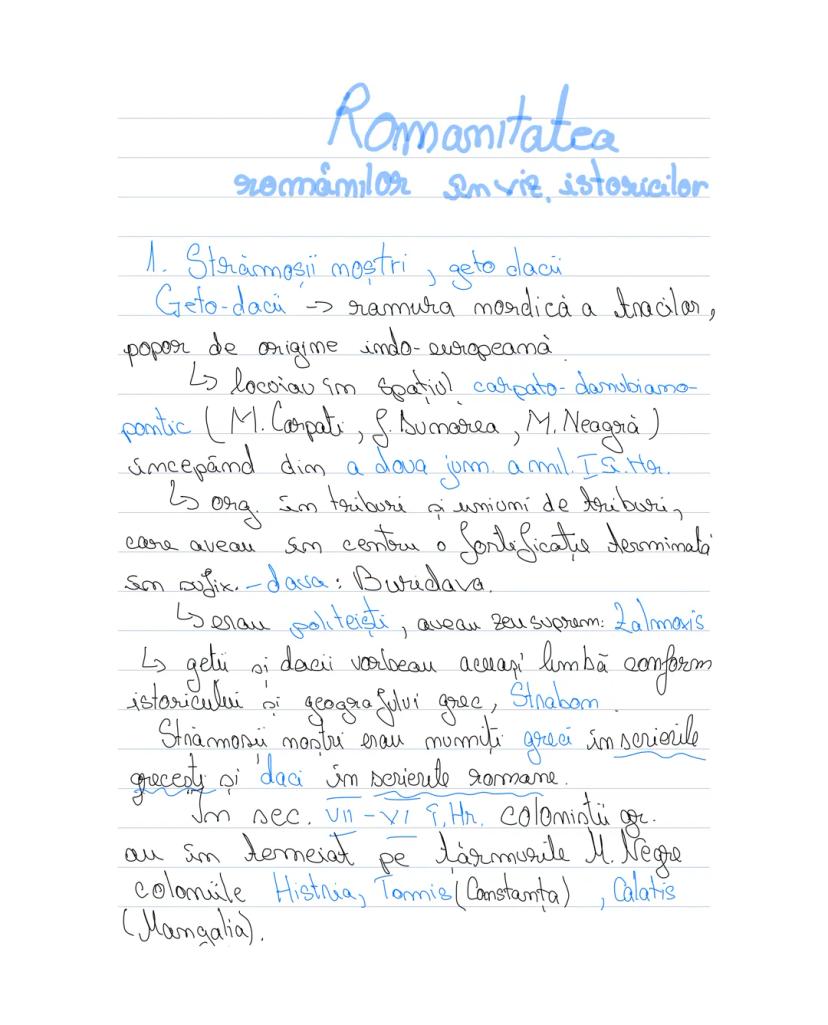 Romanitatea
românilor în viz. istoricilor
1. Strămoșii noștri, geto dacii
Geto-dacii -> ramura nordică a tracilor,
popor de origine indo-europeană
↳ locoiau în spațiul carpato-danubiano-
pontic (M. Carpati, f. Dunărea, M. Neagră)
începând din a doua jum. a mil. I î.Hr.
↳ org. în triburi și uniuni de triburi,
care aveau în centru o fortificație terminată
în sufix. -dava: Buridava.
↳ erau politeiști, aveau zeu suprem: Zalmoxis
↳ geții și dacii vorbeau aceeași limbă conform
istoricului și geografului grec, Strabon.
Strămoșii noștri erau numiți greci în scrierile
grecești și daci în scrierile romane.
În sec. VII-VI î.Hr. coloniștii gr.
au în temeiat pe țărmurile M. Negre
coloniile Histria, Tomis (Constanța), Calatis
(Mangalia).